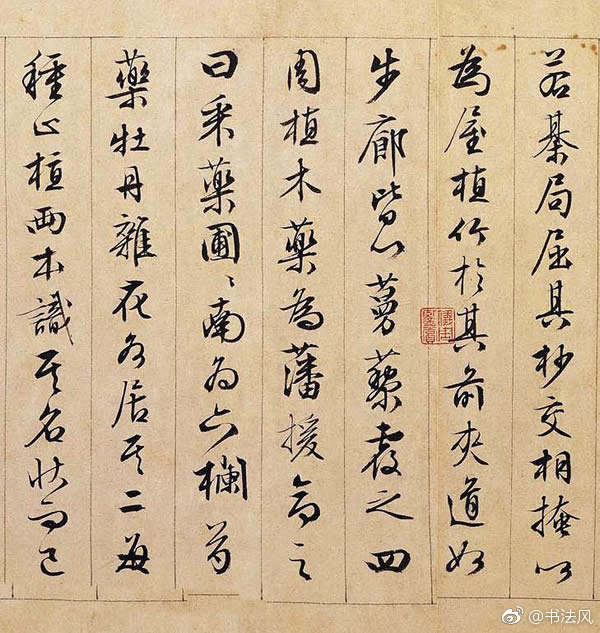 若棊局屈其杪交相掩以
為屋植竹於其前夾道如
步廊皆以蔓藥覆之四
周植木藥為藩援命之
曰采藥圃〻南為六欄芍
藥牡丹雜花各居其二每
種止植兩本識其名狀而已
@书法风